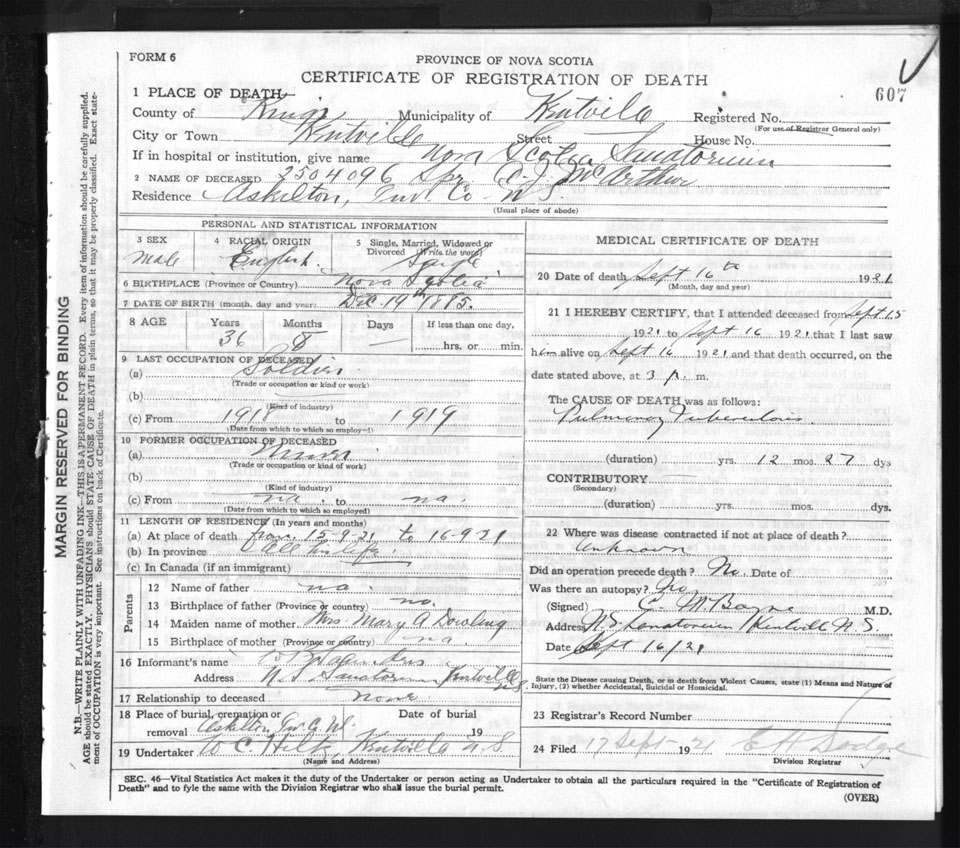 FORM 6
PROVINCE OF NOVA SCOTIA
CERTIFICATE OF REGISTRATION OF DEATH
607
1 PLACE OF DEATH
County of Kings Municipality of Kentville Registered No.
(For use of Registrar General only)
City or Town Kentville Street House No.
If in hospital or institution, give name Nova Scotia Sanatorium
2 NAME OF DECEASED 2504096 Spr. McArthur
Residence Askilton, Inv. Co. N.S.
(Usual place of abode)
PERSONAL AND STATISTICAL INFORMATION
3 SEX Male
4 RACIAL ORIGIN English
5 Single, Married, Widowed or Divorced (Write the word) Single
6 BIRTHPLACE (Province or Country) Nova Scotia
7 DATE OF BIRTH (month, day and year) Dec. 19th 1885.
8 AGE Years 36 Months 8 Days — If less than one day, hrs. or min.
9 LAST OCCUPATION OF DECEASED
(a) Soldier
(Trade or occupation or kind of work)
(b) —
(Kind of industry)
(c) From to 1919
(Date from which to which so employ-)
10 FORMER OCCUPATION OF DECEASED
(a) Miner
(Trade or occupation or kind of work)
(b)
(Kind of industry)
(c) From na. to na.
(Date from which to which so employed)
11 LENGTH OF RESIDENCE (In years and months)
(a) At place of death from 15-9-21 to 16-9-21
(b) In province All his life.
(c) In Canada (if an immigrant)
Parents
12 Name of father na.
13 Birthplace of father (Province or country) na.
14 Maiden name of mother Mrs. Mary A Dowling
15 Birthplace of mother (Province or country) na
16 Informant's name
Address N.S. Sanatorium Kentville N.S.
17 Relationship to deceased none
18 Place of burial, cremation or removal Askilton Date of burial 19
19 Undertaker W C Hiltz, Kentville N.S.
(Name and Address)
MEDICAL CERTIFICATE OF DEATH
20 Date of death Sept 16th 1921
(Month, day and year)
21 I HEREBY CERTIFY, that I attended deceased from Sept 15
1921 to Sept 16 1921 that I last saw
him alive on Sept 16 1921 and that death occurred, on the
date stated above, at 3 m.
The CAUSE OF DEATH was as follows:
Pulmonary Tuberculosis.
(duration) yrs. 12 mos. 27 dys
CONTRIBUTORY —
(Secondary)
(duration) yrs. mos. dys.
22 Where was disease contracted if not at place of death?
Unknown
Did an operation precede death? No. Date of
Was there an autopsy? No
(Signed) C. M. Bayne M.D.
Address N.S. Sanatorium Kentville N.S.
Date Sept 16/21
State the Disease causing Death, or in death from Violent Causes, state (1) Means and Nature of
Injury, (2) whether Accidental, Suicidal or Homicidal.
23 Registrar's Record Number
24 Filed 17 Sept 1921 E H Dodge
Division Registrar
SEC. 46—Vital Statistics Act makes it the duty of the Undertaker or person acting as Undertaker to obtain all the particulars required in the "Certificate of Registration of
Death" and to fyle the same with the Division Registrar who shall issue the burial permit.
(OVER)
MARGIN RESERVED FOR BINDING
N.B.—WRITE PLAINLY WITH UNFADING INK—THIS IS A PERMANENT RECORD. Every item of information should be carefully supplied.
AGE should be stated EXACTLY. PHYSICIANS should STATE CAUSE OF DEATH in plain terms, so that it may be properly classified. Exact state-
ment of OCCUPATION is very important. See instructions on back of Certificate.